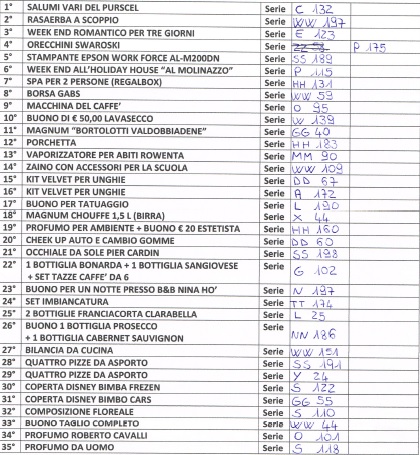 1° SALUMI VARI DEL PURSCEL Serie C 132
2° RASAERBA A SCOPPIO Serie WW 197
3° WEEK END ROMANTICO PER TRE GIORNI Serie E 123
4° ORECCHINI SWAROSKI Serie P 175
5° STAMPANTE EPSON WORK FORCE AL-M200DN Serie SS 189
6° WEEK END ALL'HOLIDAY HOUSE "AL MOLINAZZO" Serie P 115
7° SPA PER 2 PERSONE (REGALBOX) Serie HH 131
8° BORSA GABS Serie WW 59
9° MACCHINA DEL CAFFE' Serie O 95
10° BUONO DI € 50,00 LAVASECCO Serie W 139
11° MAGNUM "BORTOLOTTI VALDOBBIADENE" Serie GG 40
12° PORCHETTA Serie HH 183
13° VAPORIZZATORE PER ABITI ROWENTA Serie MM 90
14° ZAINO CON ACCESSORI PER LA SCUOLA Serie WW 109
15° KIT VELVET PER UNGHIE Serie DD 67
16° KIT VELVET PER UNGHIE Serie A 172
17° BUONO PER TATUAGGIO Serie L 190
18° MAGNUM CHOUFFE 1,5 L (BIRRA) Serie X 44
19° PROFUMO PER AMBIENTE + BUONO € 20 ESTETISTA Serie HH 160
20° CHEEK UP AUTO E CAMBIO GOMME Serie DD 60
21° OCCHIALE DA SOLE PIER CARDIN Serie SS 198
22° 1 BOTTIGLIA BONARDA + 1 BOTTIGLIA SANGIOVESE Serie G 102
+ SET TAZZE CAFFE' DA 6
23° BUONO PER UN NOTTE PRESSO B&B NINA HO' Serie N 197
24° SET IMBIANCATURA Serie TT 174
25° 2 BOTTIGLIE FRANCIACORTA CLARABELLA Serie L 25
26° BUONO 1 BOTTIGLIA PROSECCO Serie NN 186
+ 1 BOTTIGLIA CABERNET SAUVIGNON
27° BILANCIA DA CUCINA Serie WW 151
28° QUATTRO PIZZE DA ASPORTO Serie SS 191
29° QUATTRO PIZZE DA ASPORTO Serie Y 24
30° COPERTA DISNEY BIMBA FREZEN Serie S 122
31° COPERTA DISNEY BIMBO CARS Serie GG 55
32° COMPOSIZIONE FLOREALE Serie S 110
33° BUONO TAGLIO COMPLETO Serie WW 44
34° PROFUMO ROBERTO CAVALLI Serie O 101
35° PROFUMO DA UOMO Serie S 118